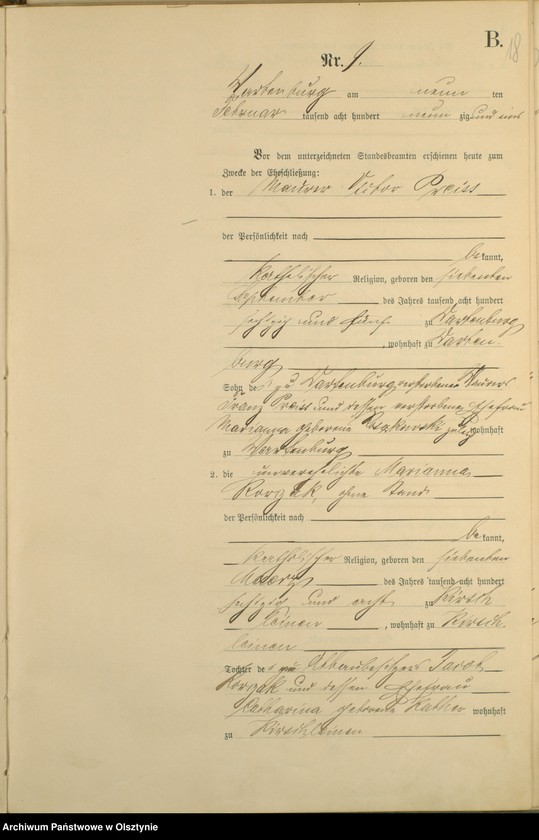 B.
18
Nr. 9.
Wartenburg am neun ten
Februar tausend acht hundert neun zig und eins
Vor dem unterzeichneten Standesbeamten erschienen heute zum
Zwecke der Eheschließung:
1. der Maurer Victor Preiss
der Persönlichkeit nach
be kannt,
katholischer Religion, geboren den siebenten
September des Jahres tausend acht hundert
sechzig und fünf zu Wartenburg
, wohnhaft zu Warten-
burg
Sohn des zu Wartenburg verstorbenen Maurers
Franz Preiss und dessen verstorbene Ehefrau
Marianna geborene wohnhaft
zu Wartenburg
2. die unverehelichte Marianna
Korzak, ohne Stand
der Persönlichkeit nach
be kannt,
katholischer Religion, geboren den siebenten
Maerz des Jahres tausend acht hundert
sechzig und acht zu Kirsch
lainen , wohnhaft zu Kirsch
lainen
Tochter des Abbaubesitzers Jacob
Korzak und dessen Ehefrau
Catharina geborene Kather wohnhaft
zu Kirschlainen
Archiwum Państwowe w Olsztynie